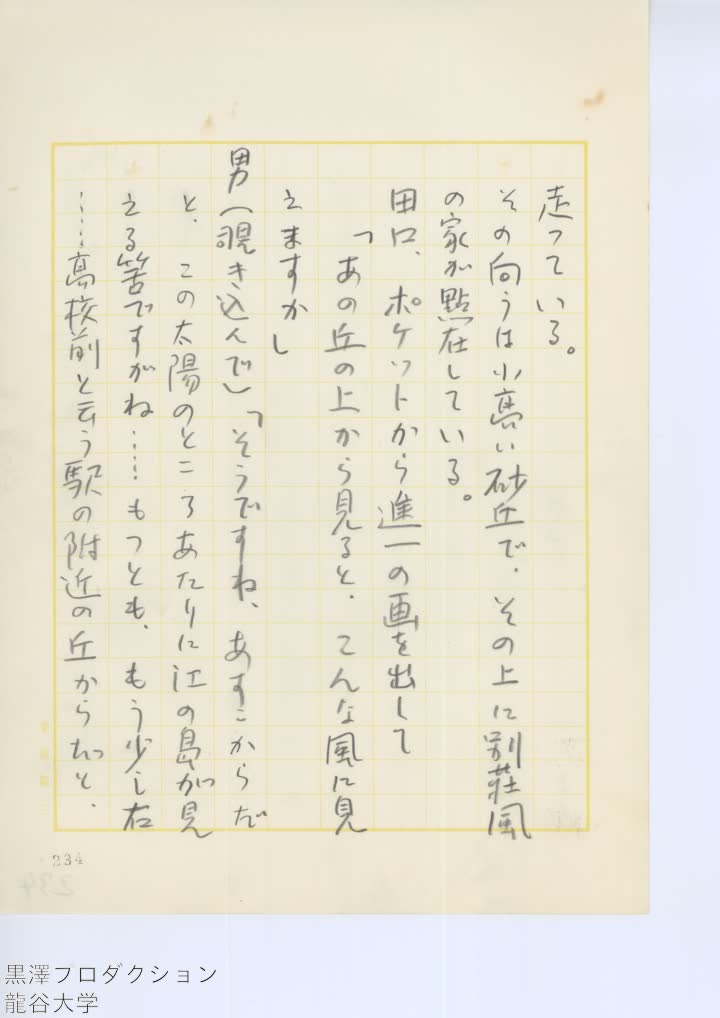 走っている。
その向うは小高い砂丘で、その上に別荘風
の家が點在している。
田口、ポケットから進一の画を出して
「あの丘の上から見ると、こんな風に見
えますか」
男（覗き込んで）「そうですね、あすこからだ
と、この太陽のところあたりに江の島が見
える筈ですがね……もっとも、もう少し右
……高校前と云う駅の附近の丘からだと、
234
黒澤プロダクション
龍谷大学